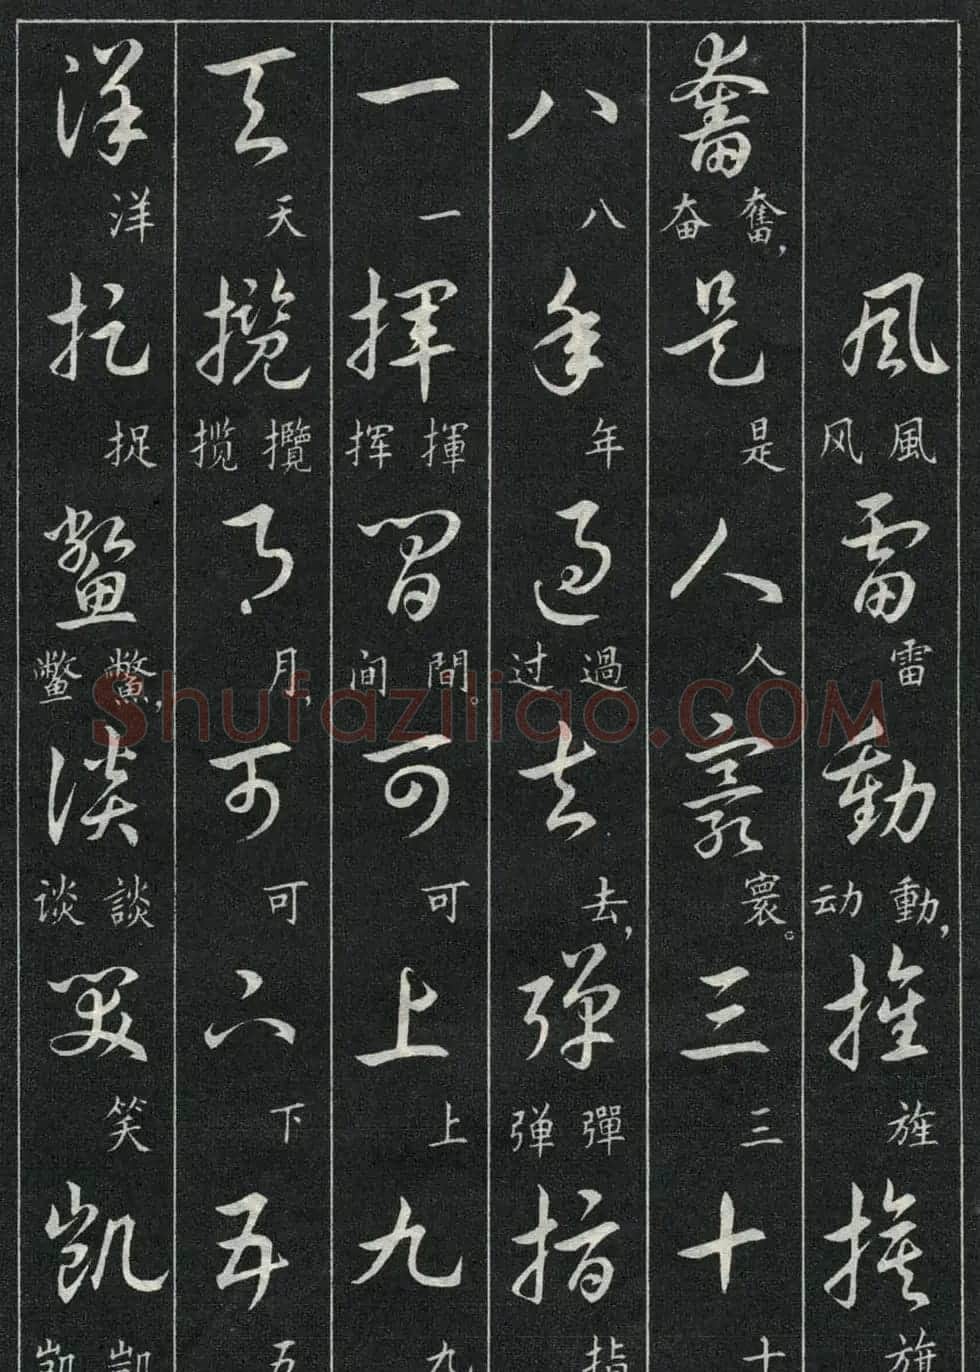 風雷動，旌旗
奮，是人寰。三十
八年過去，彈指
一揮間。可上九
天攬月，可下五
洋捉鱉，談笑凱
风 風
雷
动 動，
旌
旗
奋 奮，
是
人
寰。
三
十
八
年
过 過
去，
弹 彈
指
一
挥 揮
间 間。
可
上
九
天
揽 攬
月，
可
下
五
洋
捉
鳖 鱉，
谈 談
笑
凯 凱
Shufaziliao.COM